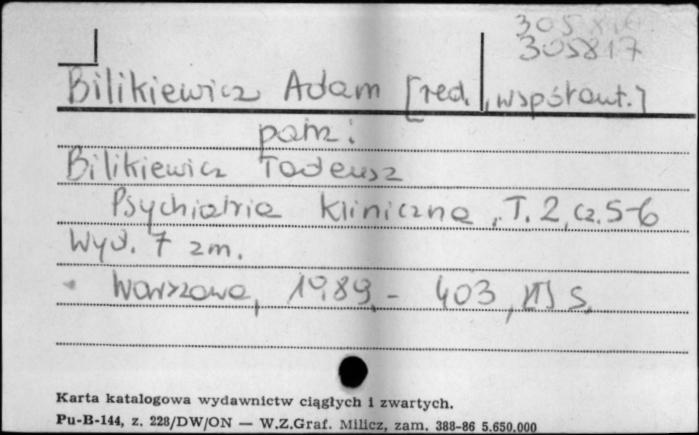 305817
Bilikiewicz Adam [red., współaut.]
patrz:
Bilikiewicz Tadeusz
Psychiatria kliniczna, T. 2, cz. 5-6
Wyd. 7 zm.
Warszawa, 1989, - 403, s.
Karta katalogowa wydawnictw ciągłych i zwartych.
Pu-B-144, z. 228/DW/ON — W.Z.Graf. Milicz, zam. 388-86 5.650.000